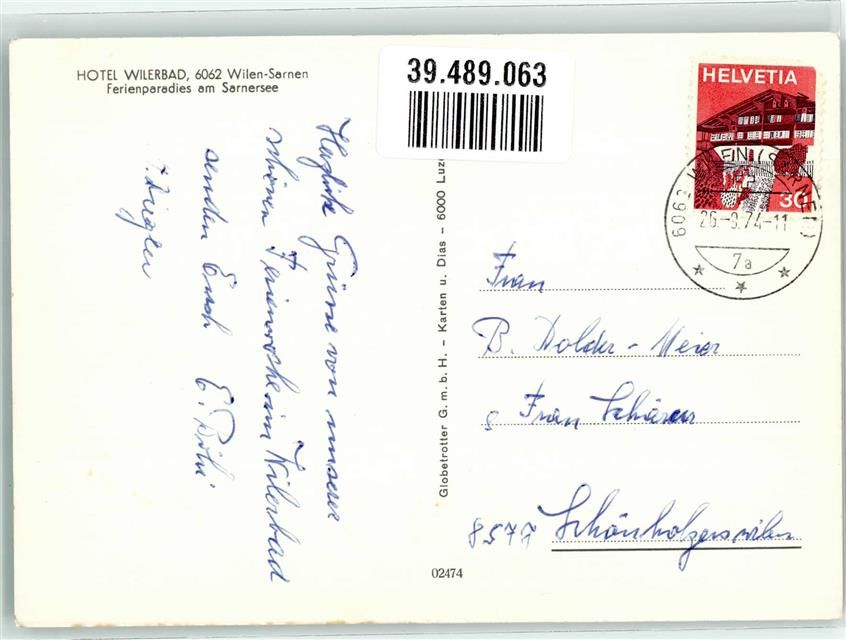 HOTEL WILERBAD, 6062 Wilen-Sarnen
Ferienparadies am Sarnersee
39.489.063
HELVETIA
30
6062 WILEN (SARNEN)
26.-9.74-11
7a
Herzliche Grüsse von unserer
schönen Ferienwoche im Wilerbad
senden Euch E.
Globetrotter G.m.b.H. – Karten u. Dias – 6000 Luz
Frau
B. Dolder-Meier
Frau Schärer
8577 Schönholzerswilen
02474